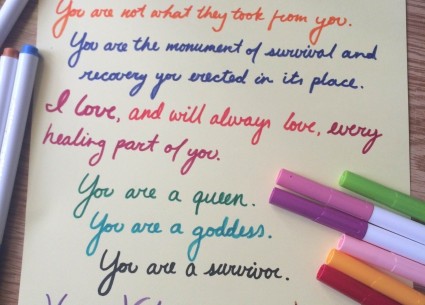 You are not what they took from you.
You are the monument of survival and
recovery you erected in its place.
I love, and will always love, every
healing part of you.
You are a queen.
You are a goddess.
You are a survivor.